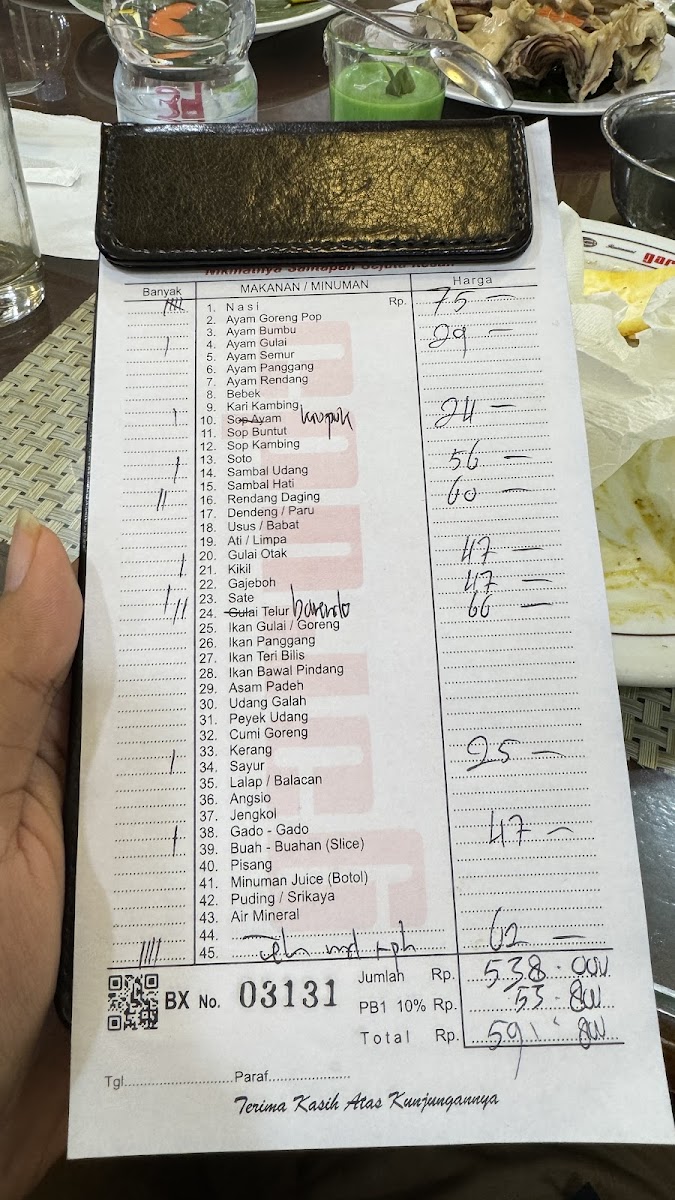 Nikmatnya Santapan Sejuta Kesan
Banyak MAKANAN / MINUMAN Harga
1. Nasi Rp. 75 —
2. Ayam Goreng Pop
3. Ayam Bumbu
4. Ayam Gulai 29 —
5. Ayam Semur
6. Ayam Panggang
7. Ayam Rendang
8. Bebek
9. Kari Kambing
10. Sop Ayam 24 —
11. Sop Buntut
12. Sop Kambing
13. Soto
14. Sambal Udang 56 —
15. Sambal Hati
16. Rendang Daging 60 —
17. Dendeng / Paru
18. Usus / Babat
19. Ati / Limpa
20. Gulai Otak
21. Kikil 47 —
22. Gajeboh
23. Sate 47 —
24. Gulai Telur 66 —
25. Ikan Gulai / Goreng
26. Ikan Panggang
27. Ikan Teri Bilis
28. Ikan Bawal Pindang
29. Asam Padeh
30. Udang Galah
31. Peyek Udang
32. Cumi Goreng
33. Kerang
34. Sayur 25 —
35. Lalap / Balacan
36. Angsio
37. Jengkol
38. Gado - Gado
39. Buah - Buahan (Slice) 47 —
40. Pisang
41. Minuman Juice (Botol)
42. Puding / Srikaya
43. Air Mineral
44.
45. 62 —
Jumlah Rp. 538.000
BX No. 03131
PB1 10% Rp. 53.800
Total Rp. 591.800
Tgl. Paraf.
Terima Kasih Atas Kunjungannya